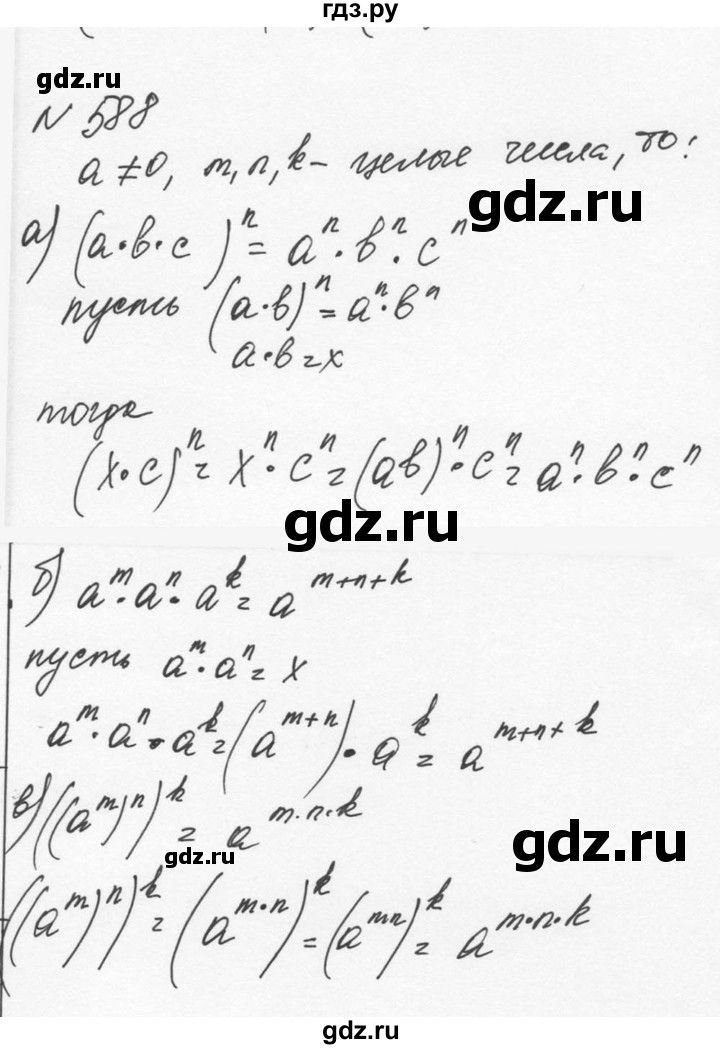 гдз.ру
gdz.ru
N 588
a ≠ 0, m, n, k – целые числа, то:
gdz.ru
а) (a·в·c)ⁿ = aⁿ·вⁿ·cⁿ
пусть (a·в)ⁿ = aⁿ·вⁿ
a·в = x
тогда
(x·c)ⁿ = xⁿ·cⁿ = (aв)ⁿ·cⁿ = aⁿ·вⁿ·cⁿ
gdz.ru
б) aᵐ·aⁿ·aᵏ = aᵐ⁺ⁿ⁺ᵏ
пусть aᵐ·aⁿ = x
aᵐ·aⁿ·aᵏ = (aᵐ⁺ⁿ)·aᵏ = aᵐ⁺ⁿ⁺ᵏ
в) ((aᵐ)ⁿ)ᵏ = aᵐ·ⁿ·ᵏ
gdz.ru
gdz.ru
((aᵐ)ⁿ)ᵏ = (aᵐ·ⁿ)ᵏ = (aᵐⁿ)ᵏ = aᵐ·ⁿ·ᵏ
gdz.ru